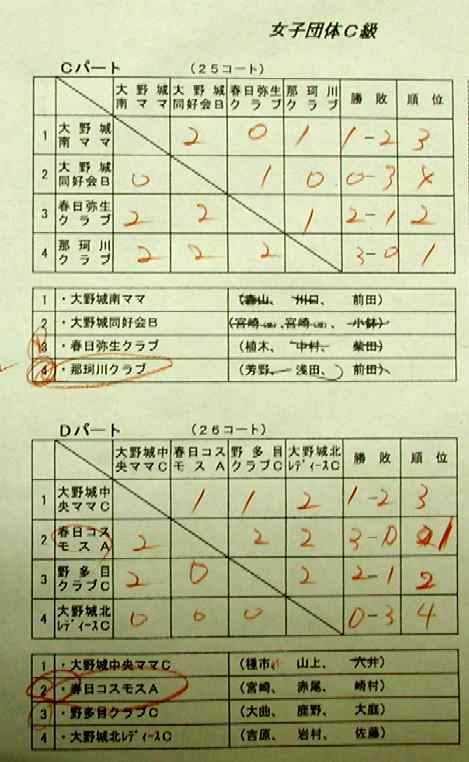 女子団体C級
Cパート (25コート)
大野城南ママ 大野城同好会B 春日弥生クラブ 那珂川クラブ 勝敗 順位
1 大野城南ママ 2 0 1 1-2 3
2 大野城同好会B 0 1 0 0-3 4
3 春日弥生クラブ 2 2 1 2-1 2
4 那珂川クラブ 2 2 2 3-0 1
1 ・大野城南ママ (春山、 川口、 前田)
2 ・大野城同好会B (宮崎、宮崎、 小鉢)
3 ・春日弥生クラブ (植木、 中村、 柴田)
4 ・那珂川クラブ (芳野、 浅田、 前田)
Dパート (26コート)
大野城中央ママC 春日コスモスA 野多目クラブC 大野城北レディースC 勝敗 順位
1 大野城中央ママC 1 1 2 1-2 3
2 春日コスモスA 2 2 2 3-0 1
3 野多目クラブC 2 0 2 2-1 2
4 大野城北レディースC 0 0 0 0-3 4
1 ・大野城中央ママC (種市、 山上、 六井)
2 ・春日コスモスA (宮崎、 赤尾、 崎村)
3 ・野多目クラブC (大曲、 鹿野、 大庭)
4 ・大野城北レディースC (吉原、 岩村、 佐藤)